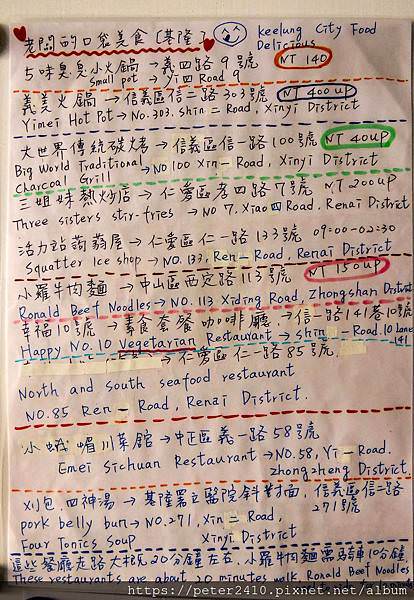 老闆的口袋美食(基隆)
Keelung City Food
Delicious
5味臭臭小火鍋→義四路9號 NT 140
Small pot → Yi 四 Road 9
義美火鍋→信義區信二路303號 NT 400 up
Yimei Hot Pot → NO.303. shin 二 Road, Xinyi District
大世界傳統碳烤→信義區信一路100號 NT 40up
Big World Traditional → NO 100 Xin 一 Road, Xinyi District
Charcoal Grill
三姐妹熱炒店→仁愛區孝四路7號 NT 200 up
Three sisters stir-fries → NO 7. Xiao 四 Road. Renai District
活力站蒟蒻屋→仁愛區仁一路133號 09:00-02:30
Squatter Ice shop → NO.133, Ren 一 Road, Renai District
小羅牛肉麵→中山區西定路113號 NT 150 up
Ronald Beef Noodles → NO. 113 Xiding Road, Zhongshan District
幸福10號→素食套餐咖啡廳→信一路141巷10號
Happy No. 10 Vegetarian Restaurant → shin 一 Road. 10 Lane 141
→仁愛區仁一路85號,
North and south seafood restaurant
NO.85 Ren 一 Road, Renai District.
小峨嵋川菜館→中正區義一路58號
Emei Sichuan Restaurant → NO.58, Yi 一 Road.
zhongzheng District,
刈包,四神湯→基隆署立醫院斜對面,信義區信二路271號
pork belly bun → NO.271, Xin 二 Road,
Four Tonics Soup Xinyi District
這些餐廳走路大概20分鐘左右,小羅牛肉麵需騎車10分鐘
These restaurants are about 20 minutes walk, Ronald Beef Noodles
https://peter2410.pixnet.net/album